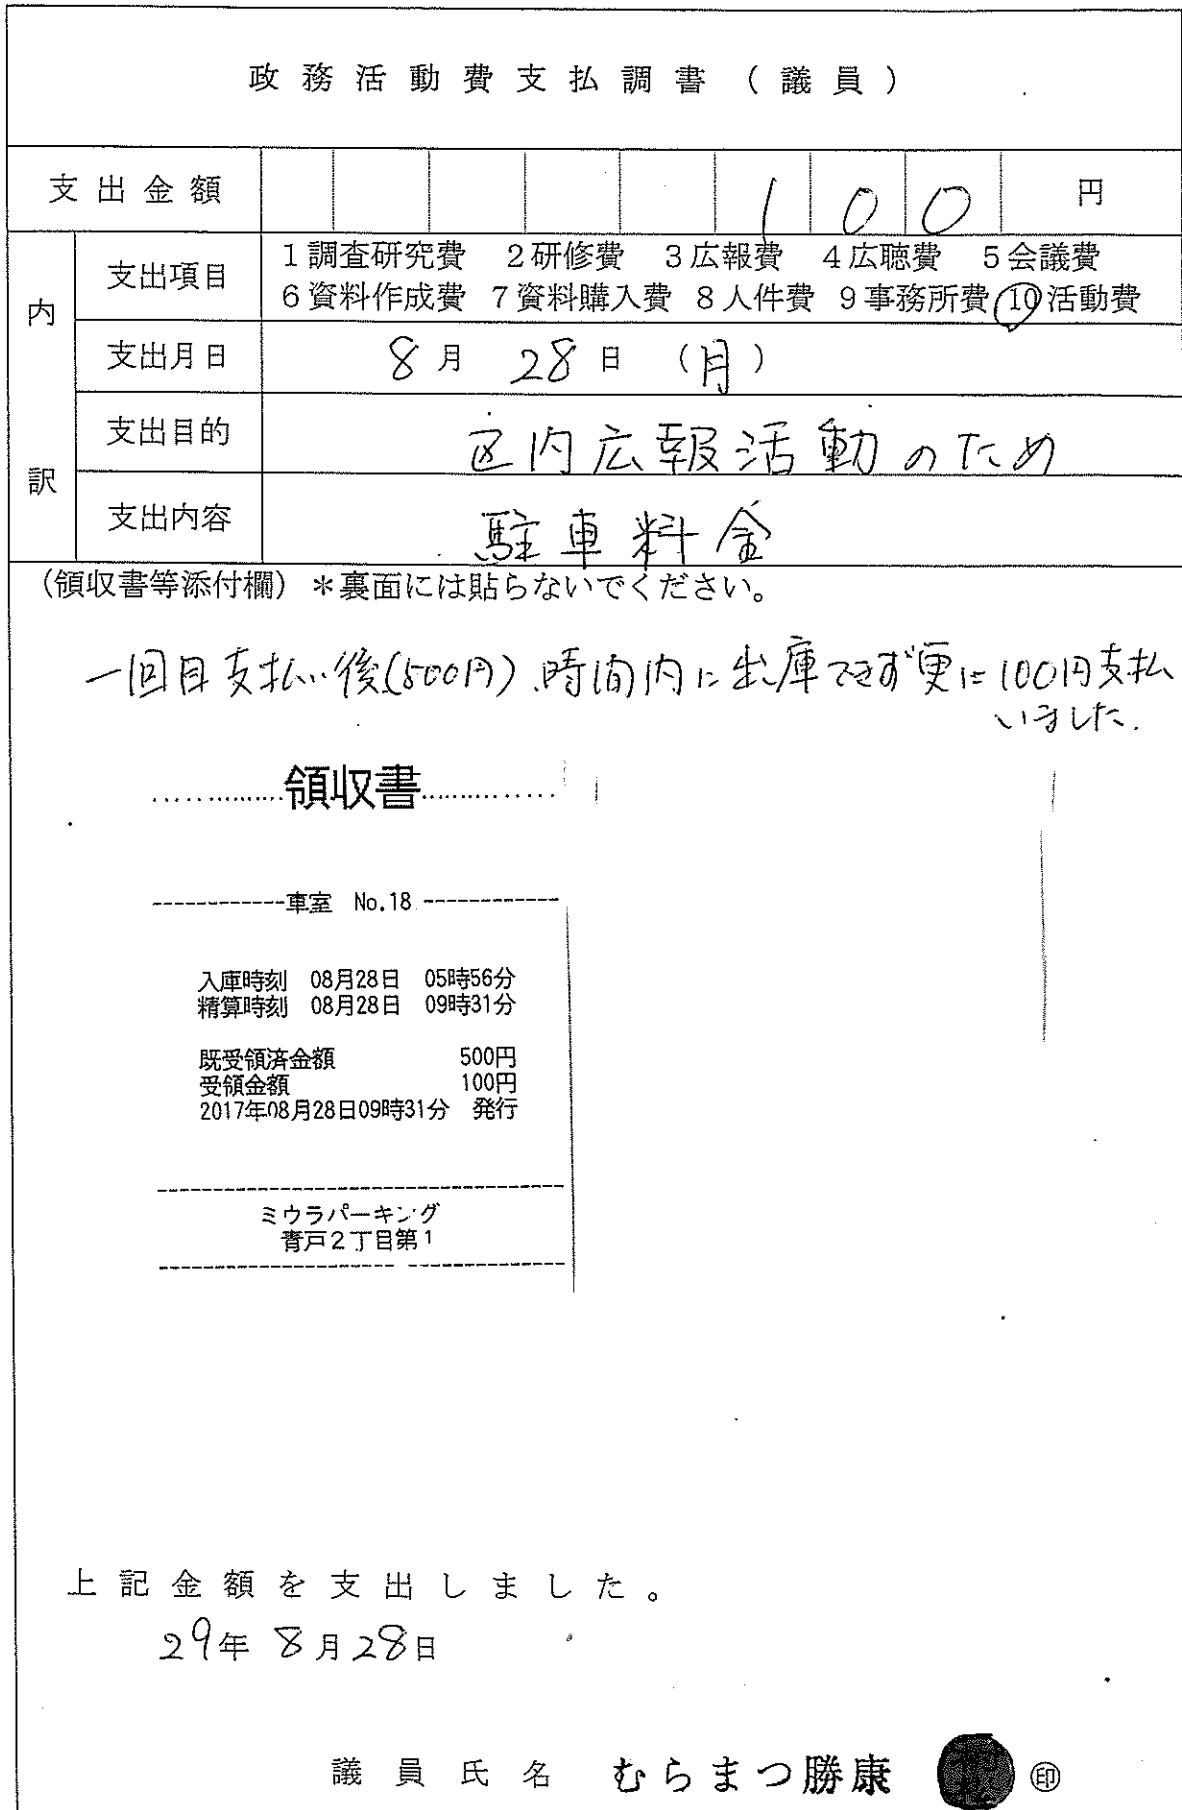 政務活動費支払調書（議員）
支出金額 100 円
内訳
支出項目 1調査研究費 2研修費 3広報費 4広聴費 5会議費
6資料作成費 7資料購入費 8人件費 9事務所費 10活動費
支出月日 8月 28日 （月）
支出目的 区内広報活動のため
支出内容 駐車料金
（領収書等添付欄）＊裏面には貼らないでください。
一回目支払い後(500円)、時間内に出庫できず更に100円支払
いました。
..............領収書..............
------------車室 No.18------------
入庫時刻 08月28日 05時56分
精算時刻 08月28日 09時31分
既受領済金額 500円
受領金額 100円
2017年08月28日09時31分 発行
ミウラパーキング
青戸2丁目第1
上記金額を支出しました。
29年 8月28日
議員氏名 むらまつ勝康 ㊞